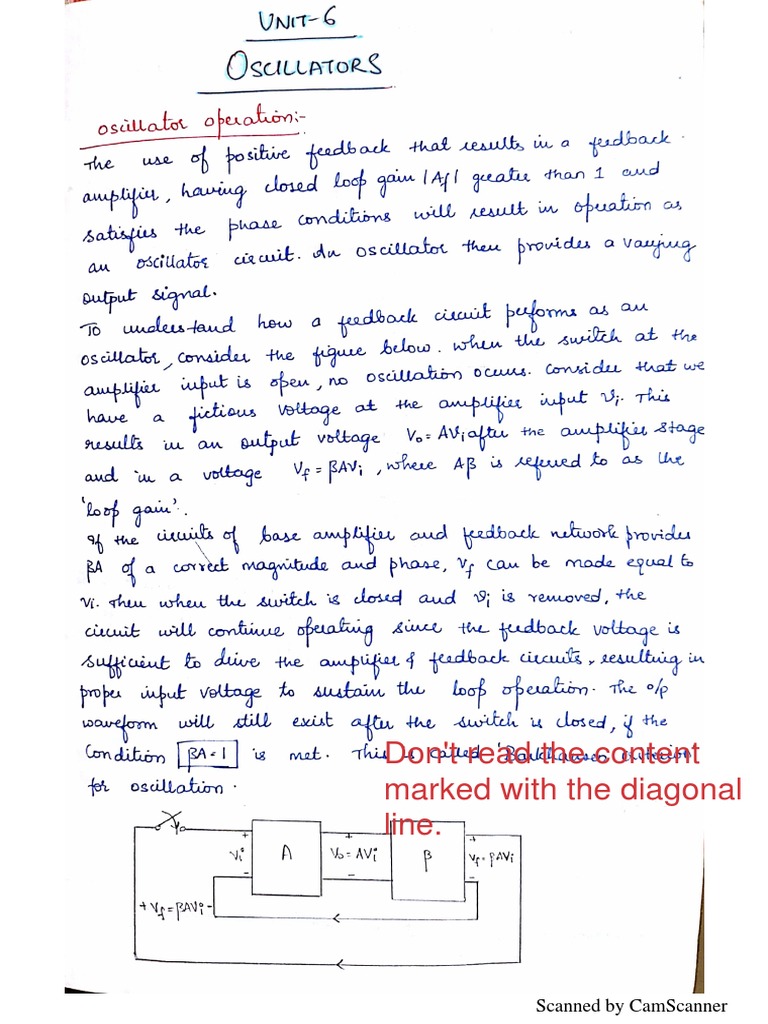 UNIT-6
OSCILLATORS
oscillator operation:-
The use of positive feedback that results in a feedback
amplifier, having closed loop gain |Af| greater than 1 and
satisfies the phase conditions will result in operation as
an oscillator circuit. An oscillator then provides a varying
output signal.
To understand how a feedback circuit performs as an
oscillator, consider the figure below. when the switch at the
amplifier input is open, no oscillation occurs. Consider that we
have a fictious voltage at the amplifier input Vi. This
results in an output voltage Vo = AVi after the amplifier stage
and in a voltage Vf = βAVi, where Aβ is referred to as the
'loop gain'.
If the circuits of base amplifier and feedback network provides
βA of a correct magnitude and phase, Vf can be made equal to
Vi. Then when the switch is closed and Vi is removed, the
circuit will continue operating since the feedback voltage is
sufficient to drive the amplifier & feedback circuits, resulting in
proper input voltage to sustain the loop operation. The o/p
waveform will still exist after the switch is closed, if the
condition βA = 1 is met. This is called 'Barkhausen criterion
for oscillation.
Don't read the content
marked with the diagonal
line.
+ Vi -
A
+ Vo = AVi -
β
+ Vf = βAVi -
+ Vf = βAVi -
Scanned by CamScanner